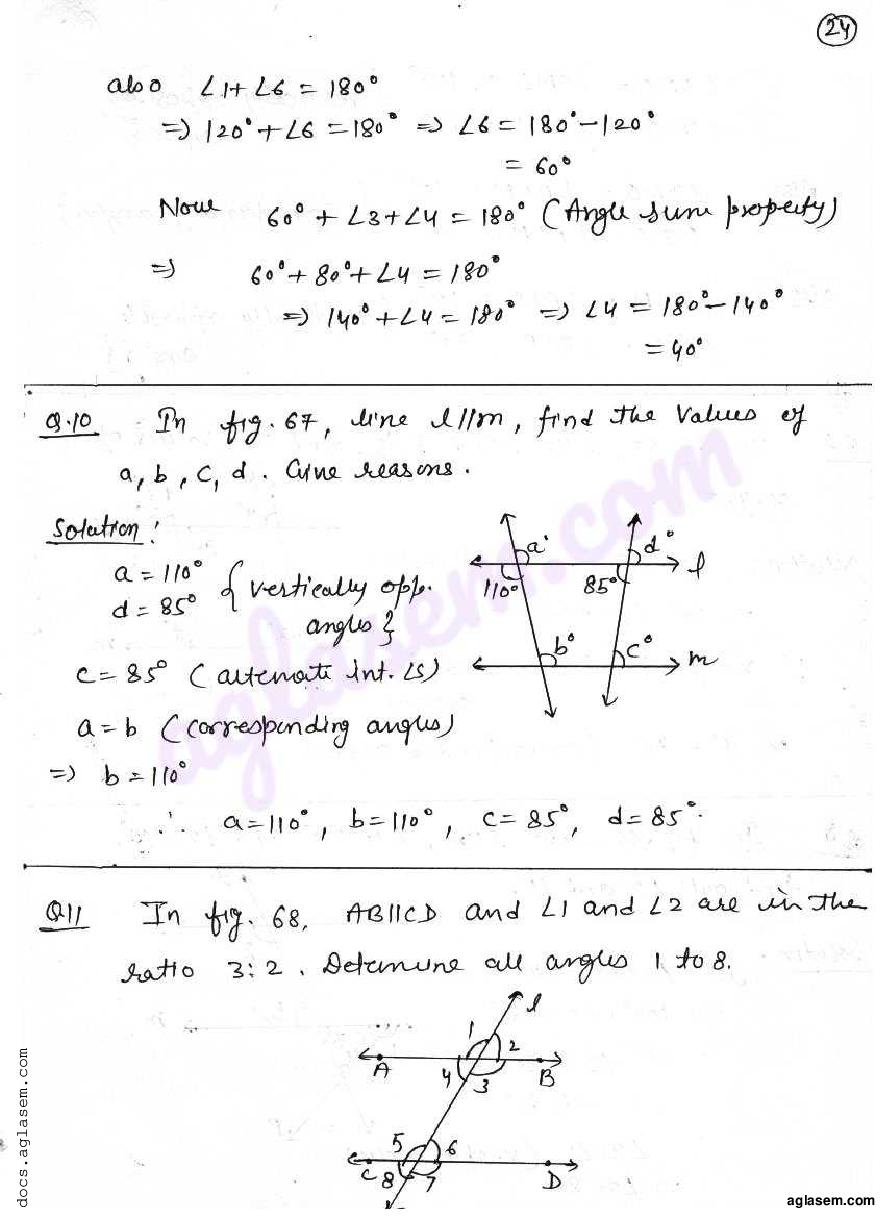 24
also ∠1+∠6 = 180°
=> 120°+∠6 = 180° => ∠6 = 180°-120°
= 60°
Now 60° + ∠3+∠4 = 180° (Angle sum property)
=> 60°+ 80°+∠4 = 180°
=> 140°+∠4 = 180° => ∠4 = 180°-140°
= 40°
Q.10 In fig. 67, line l//m, find the values of
a, b, c, d. Give reasons.
Solution:
a = 110°
d = 85° {vertically opp.
angles}
c = 85° (alternate int. ∠s)
a = b (corresponding angles)
=> b = 110°
∴ a=110°, b=110°, c= 85°, d=85°.
a°
d°
l
110°
85°
b°
c°
m
Q11 In fig. 68, AB||CD and ∠1 and ∠2 are in the
ratio 3:2. Determine all angles 1 to 8.
l
1
2
A
4
3
B
5
6
C
8
7
D
aglasem.com
docs.aglasem.com
aglasem.com